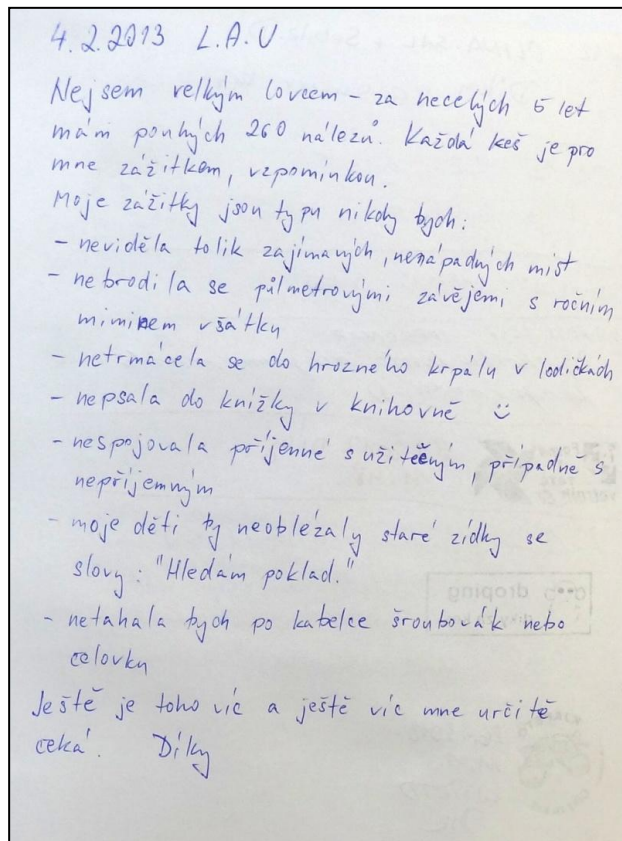 4.2.2013 L.A.U
Nejsem velkým lovcem - za necelých 5 let
mám pouhých 260 nálezů. Každá keš je pro
mne zážitkem, vzpomínkou.
Moje zážitky jsou typu nikdy bych:
- neviděla tolik zajímavých, nenápadných míst
- nebrodila se půlmetrovými závějemi s ročním
miminem v šátku
- netrmácela se do hrozného krpálu v lodičkách
- nepsala do knížky v knihovně ☺
- nespojovala příjemné s užitečným, případně s
nepříjemným
- moje děti by neoblézaly staré zídky se
slovy: "Hledám poklad."
- netahala bych po kabelce šroubovák nebo
čelovku
Ještě je toho víc a ještě víc mne určitě
čeká. Díky
droping